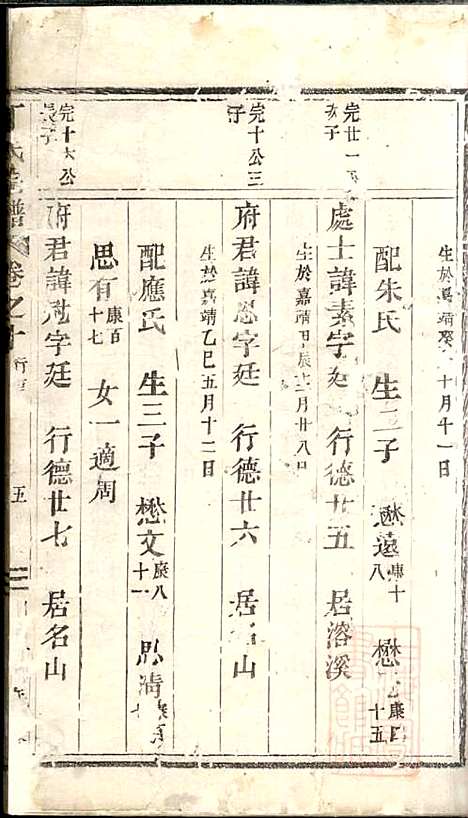 生於嘉靖癸 十月十一日
配朱氏 生二子 懋遠康十八 懋 康四十五
完廿一 次子
處士諱素字廷 行德廿五 居溶溪
生於嘉靖甲辰十二月廿八日
完十公三子
府君諱 字廷 行德廿六 居名山
生於嘉靖乙巳五月十二日
配應氏 生三子 懋文康八十一 思清
思有康百十七 女一適周
完十六公長子
府君諱 字廷 行德廿七 居名山
丁氏宗譜 卷之十 行 五